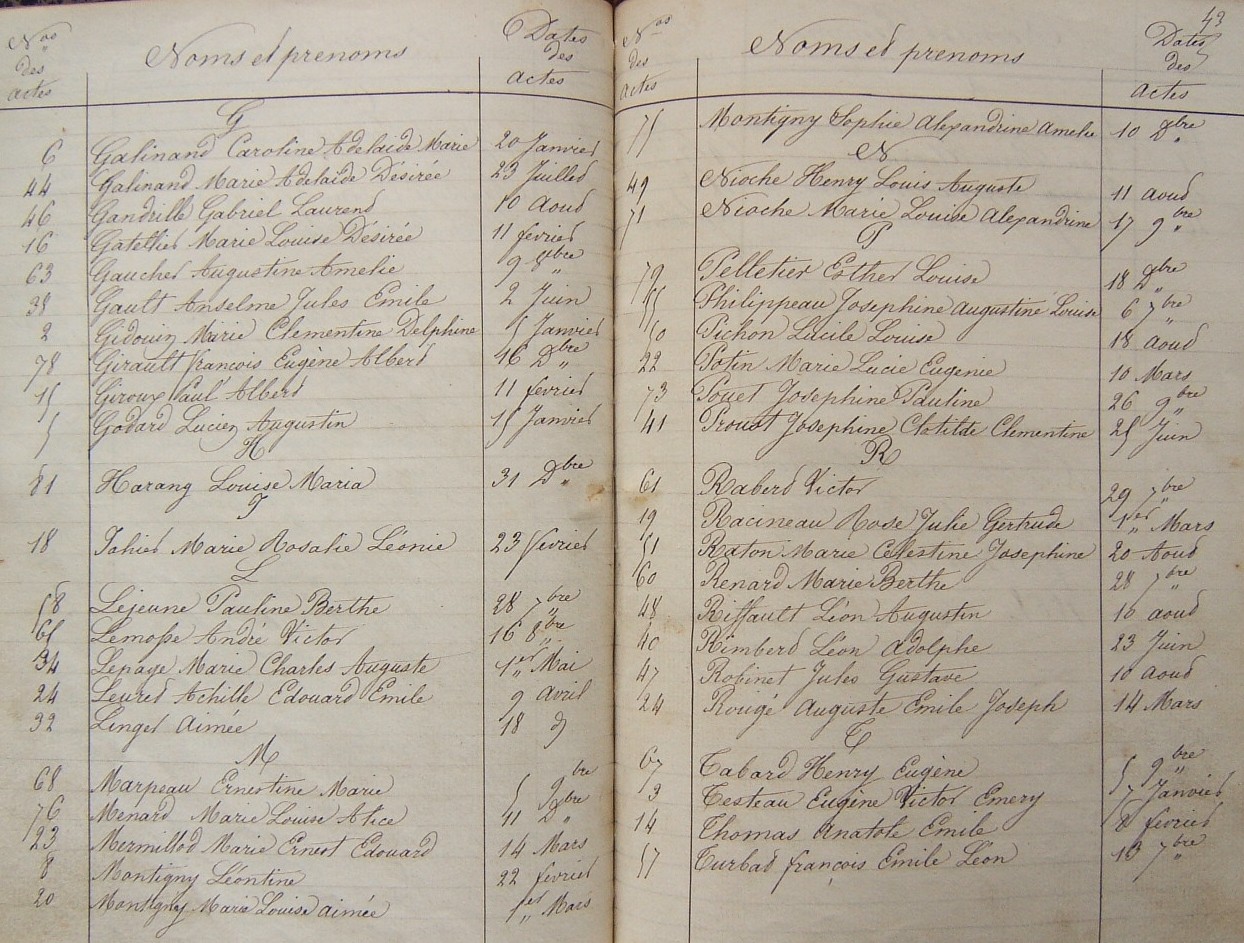 Nos des actes Noms et prenoms Dates des actes
G
6 Galinand Caroline Adelaide Marie 20 Janvier
44 Galinand Marie Adelaide Désirée 23 Juillet
46 Gandrille Gabriel Laurent 10 Aout
16 Gatellier Marie Louise Désirée 11 fevrier
63 Gaucher Augustine Amelie 9 8bre
38 Gault Anselme Jules Emile 2 Juin
2 Gidouin Marie Clementine Delphine 5 Janvier
78 Girault françois Eugène Albert 16 Dbre
15 Giroux Paul Albert 11 fevrier
5 Godard Lucien Augustin 15 Janvier
H
81 Harang Louise Maria 31 Dbre
J
18 Jahier Marie Rosalie Léonie 23 fevrier
L
58 Lejeune Pauline Berthe 28 7bre
65 Lemosse André Victor 16 8bre
34 Lepage Marie Charles Auguste 1er Mai
24 Leuret Achille Edouard Emile 9 avril
32 Linget Aimée 18 d
M
68 Marpeau Ernestine Marie 5 9bre
76 Menard Marie Louise Alice 11 Dbre
23 Mermillod Marie Ernest Edouard 14 Mars
8 Montigny Léontine 22 fevrier
20 Montigny Marie Louise aimée 1er Mars
43
Nos des actes Noms et prenoms Dates des actes
75 Montigny Sophie Alexandrine Amelie 10 Dbre
N
49 Nioche Henry Louis Auguste 11 aout
71 Nioche Marie Louise Alexandrine 17 9bre
P
79 Pelletier Esther Louise 18 Dbre
55 Philippeau Josephine Augustine Louise 6 7bre
50 Pichon Lucile Louise 18 aout
22 Potin Marie Lucie Eugenie 10 Mars
73 Pouet Josephine Pauline 26 9bre
41 Proust Josephine Clotilde Clementine 25 Juin
R
61 Rabert Victor 29 7bre
19 Racineau Rose Julie Gertrude 1er Mars
51 Raton Marie Celestine Josephine 20 Aout
60 Renard Marie Berthe 28 7bre
48 Riffault Léon Augustin 10 aout
40 Rimbert Léon Adolphe 23 Juin
47 Robinet Jules Gustave 10 aout
24 Rougé Auguste Emile Joseph 14 Mars
T
67 Tabard Henry Eugène 5 9bre
3 Testeau Eugène Victor Emery 7 Janvier
14 Thomas Anatole Emile 8 fevrier
57 Turbat françois Emile Léon 13 7bre